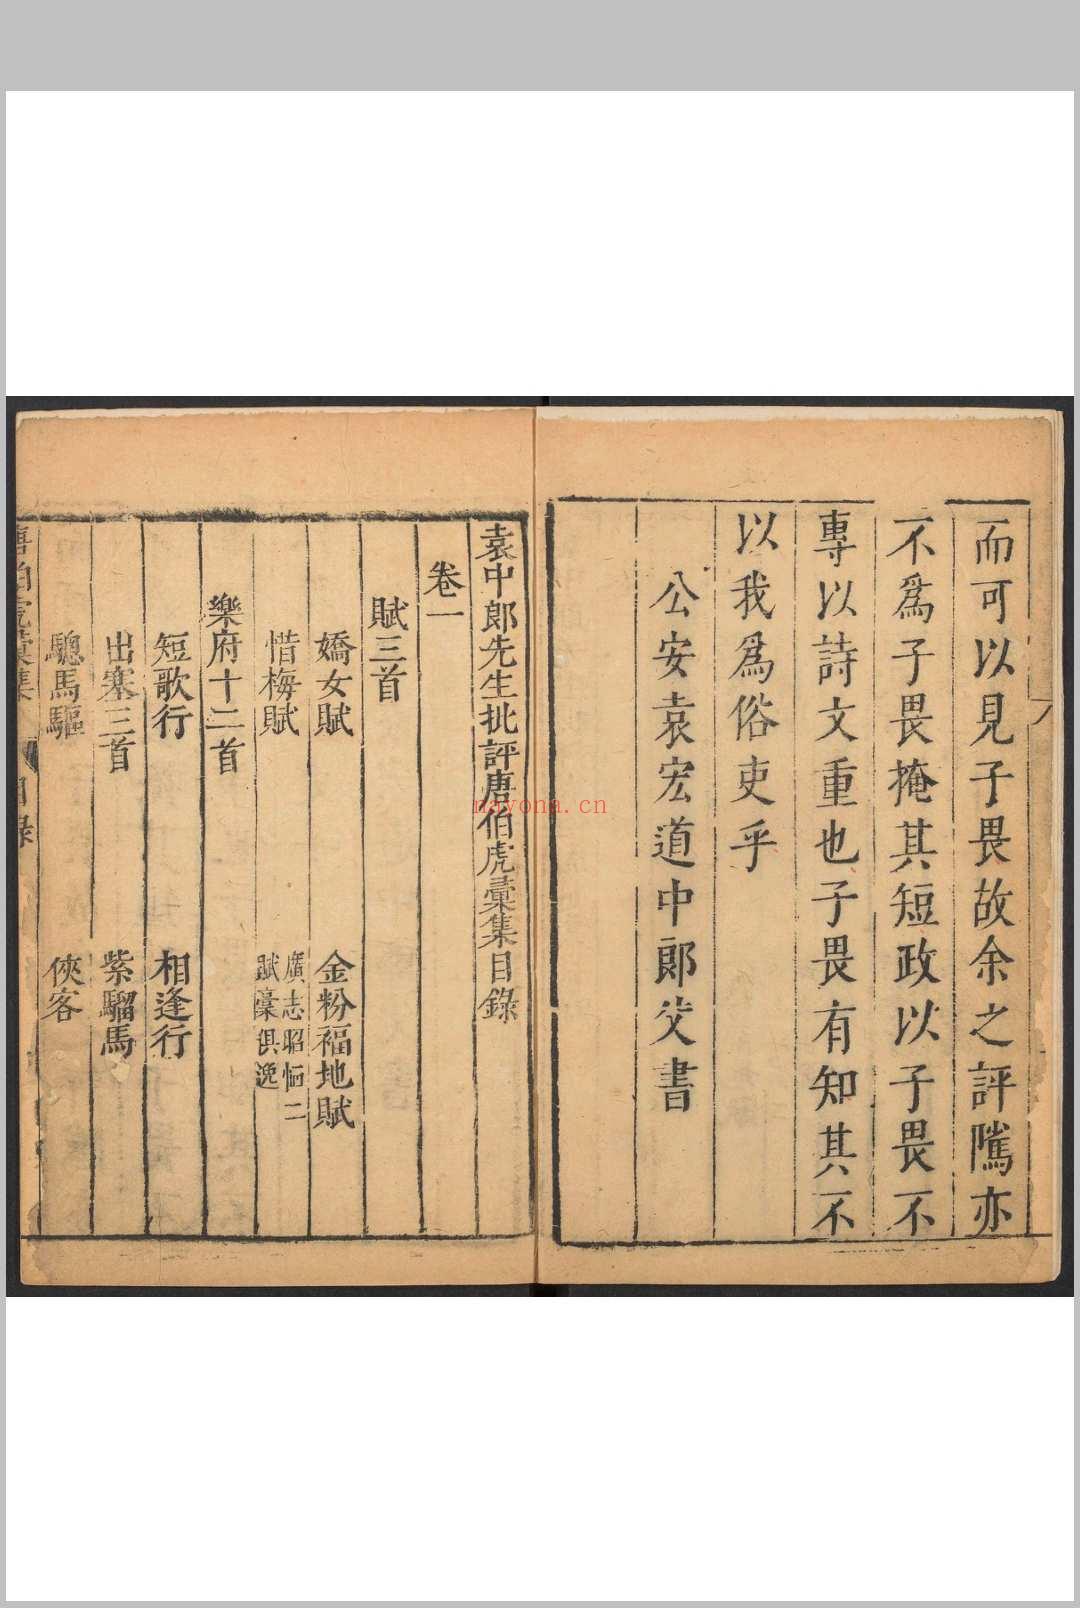 而可以見子畏故余之評隲亦
不爲子畏掩其短政以子畏不
專以詩文重也子畏有知其不
以我爲俗吏乎
公安袁宏道中郎父書
袁中郎先生批評唐伯虎彙集目錄
卷一
賦三首
嬌女賦 金粉福地賦
惜梅賦 廣志昭恤二
賦稾俱逸
樂府十二首
短歌行 相逢行
出塞三首 紫騮馬
驄馬驅 俠客
唐伯虎彙集 目錄
nayona.cn